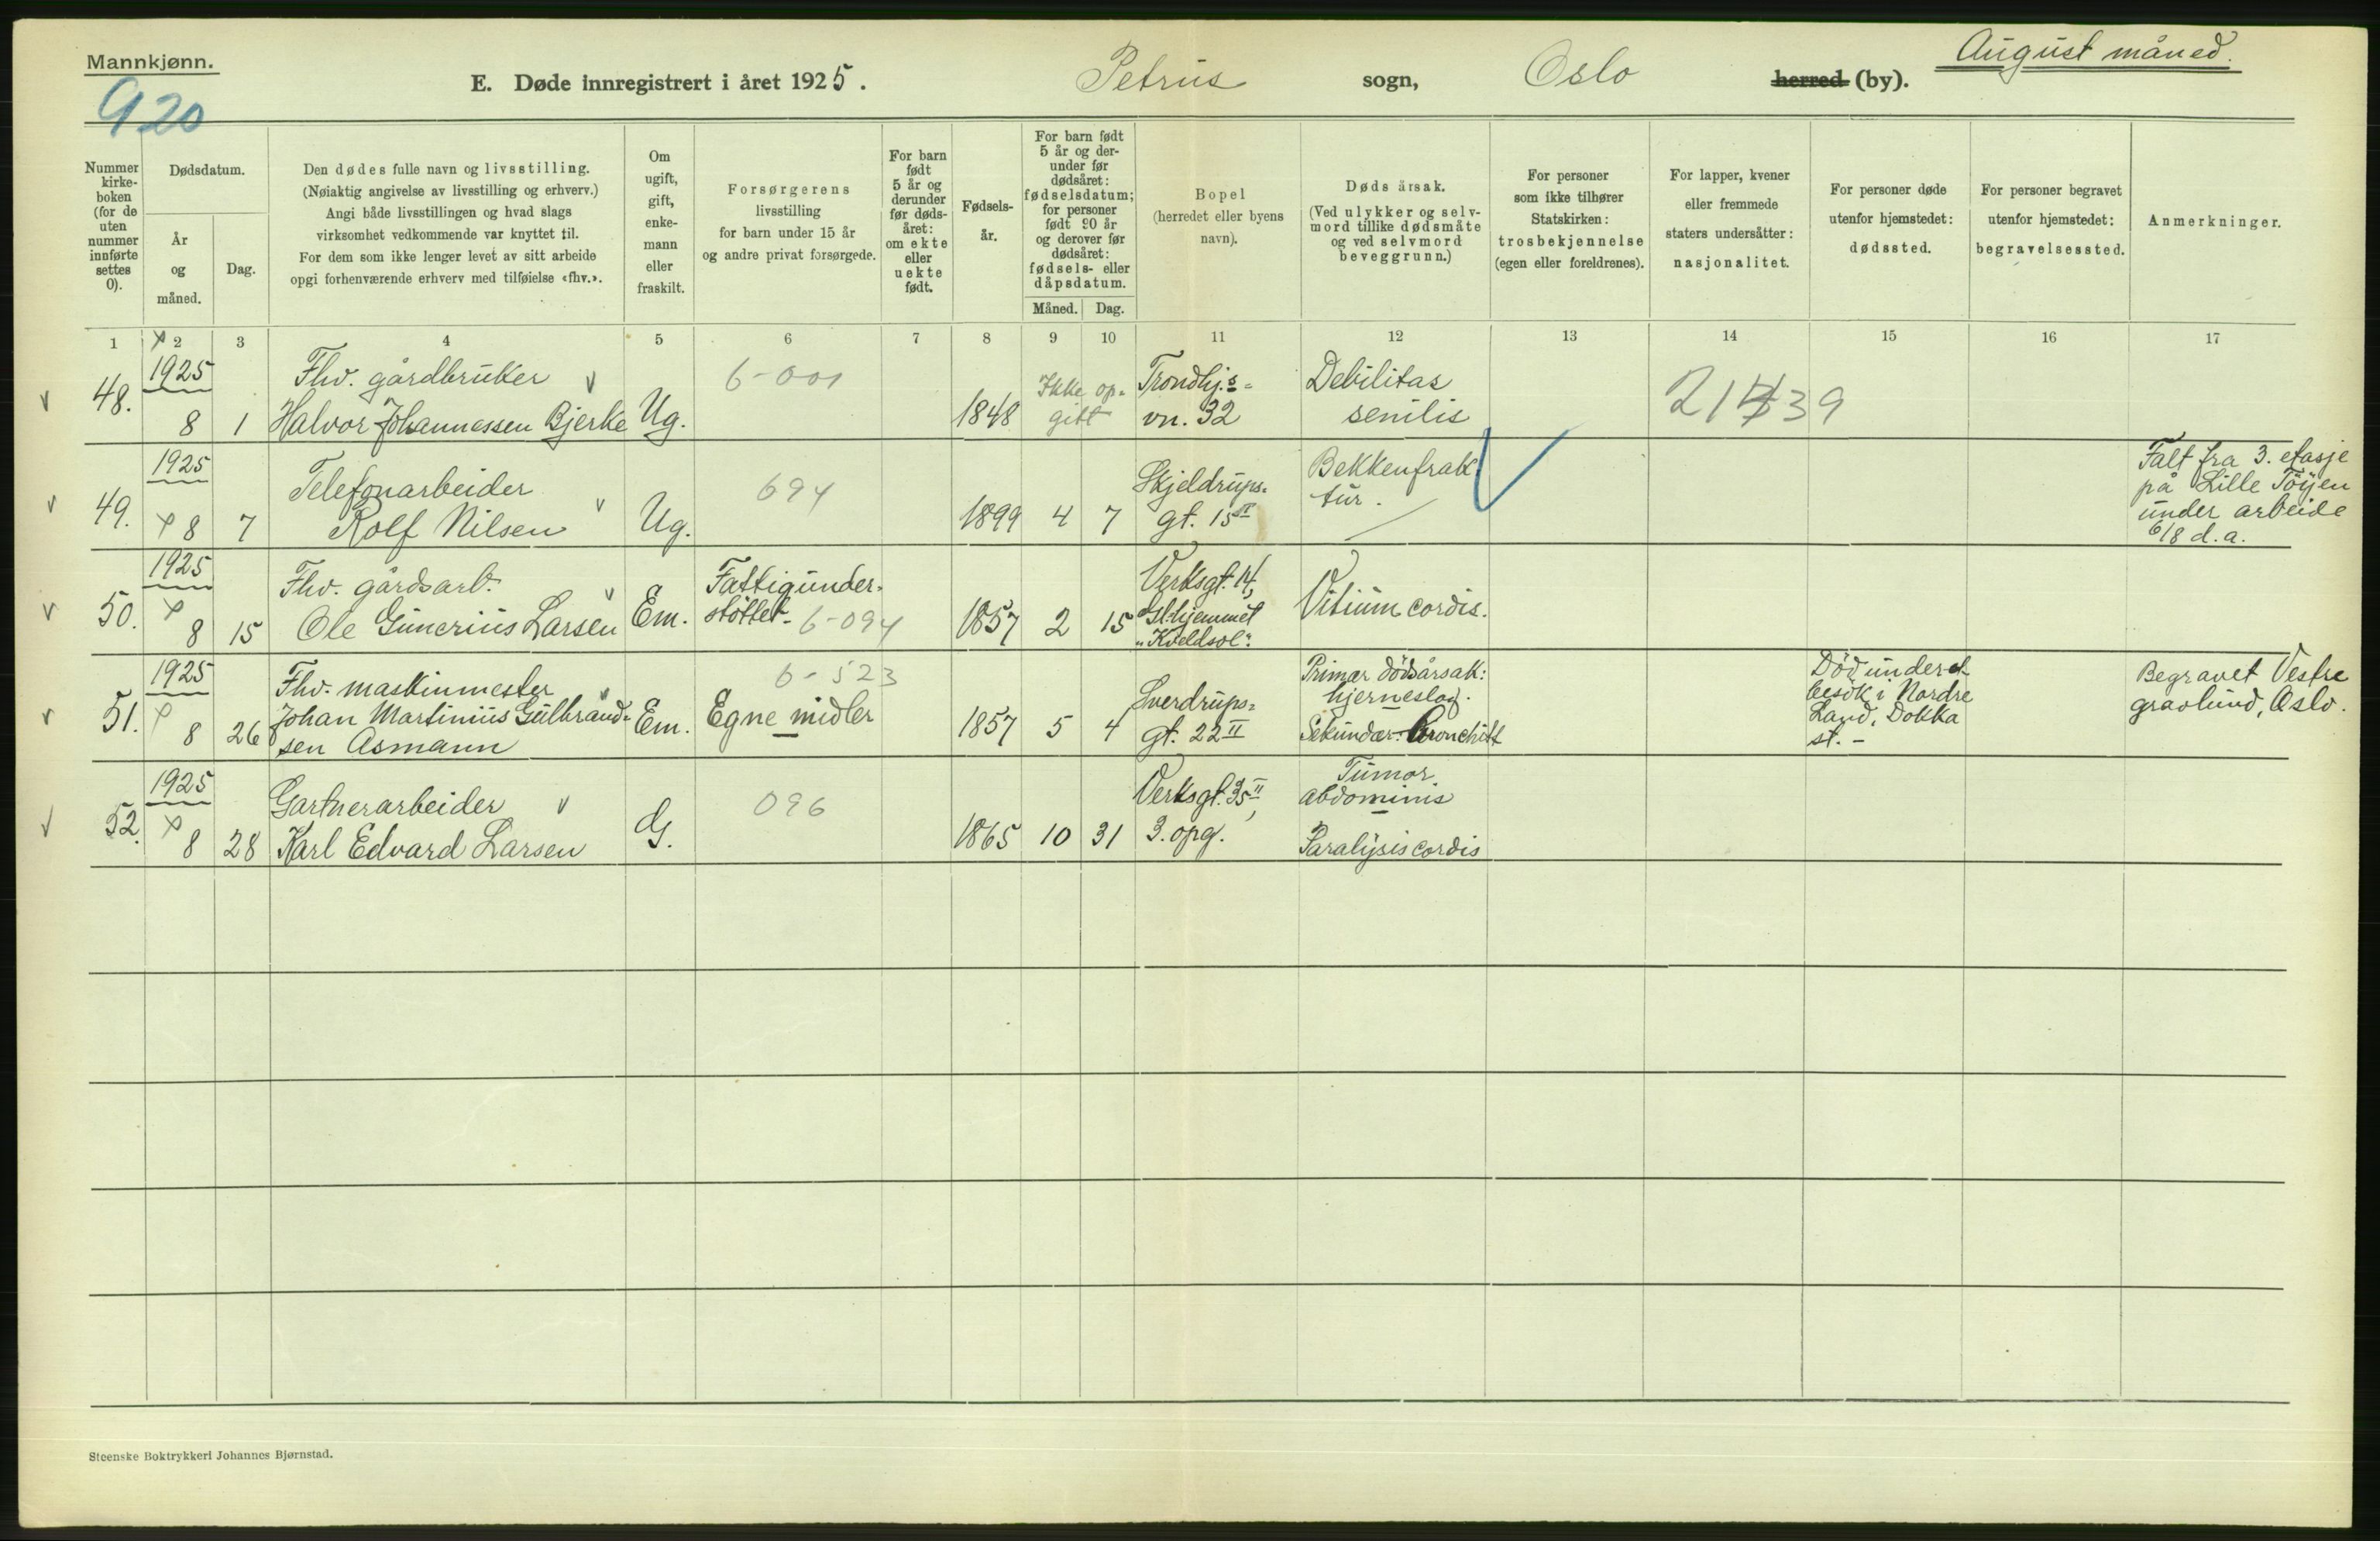 Mannkjønn.
920
E. Døde innregistrert i året 1925.
Petrus sogn, Oslo herred (by).
August måned.
Nummer
kirke-
boken
(for de
uten
nummer
innførte
settes
0).
Dødsdatum.
År
og
måned.
Dag.
Den dødes fulle navn og livsstilling.
(Nøiaktig angivelse av livsstilling og erhverv.)
Angi både livsstillingen og hvad slags
virksomhet vedkommende var knyttet til.
For dem som ikke lenger levet av sitt arbeide
opgi forhenværende erhverv med tilføielse «fhv.».
Om
ugift,
gift,
enke-
mann
eller
fraskilt.
Forsørgerens
livsstilling
for barn under 15 år
og andre privat forsørgede.
For barn
født
5 år og
derunder
før døds-
året:
om ekte
eller
uekte
født.
Fødsels-
år.
For barn født
5 år og der-
under før
dødsåret:
fødselsdatum;
for personer
født 90 år
og derover før
dødsåret:
fødsels- eller
dåpsdatum.
Måned. Dag.
Bopel
(herredet eller byens
navn).
Dødsårsak.
(Ved ulykker og selv-
mord tillike dødsmåte
og ved selvmord
beveggrunn.)
For personer
som ikke tilhører
Statskirken:
trosbekjennelse
(egen eller foreldrenes).
For lapper, kvener
eller fremmede
staters undersåtter:
nasjonalitet.
For personer døde
utenfor hjemstedet:
dødssted.
For personer begravet
utenfor hjemstedet:
begravelsessted.
Anmerkninger.
1 2 3 4 5 6 7 8 9 10 11 12 13 14 15 16 17
48.
1925
8 1
Fhv. gårdbruker
Halvor Johannessen Bjerke
Ug.
6-001
1848
Ikke op-
gitt
Trondhj.s-
vn. 32
Debilitas
senilis
49.
1925
8 7
Telefonarbeider
Rolf Nilsen
Ug.
694
1899 4 7
Skjeldrups-
gt. 15 II
Bekkenfrak-
tur.
Falt fra 3. etasje
på Lille Töyen
under arbeide
6/8 d.a.
50.
1925
8 15
Fhv. gårdsarb.
Ole Gunerius Larsen
Em.
Fattigunder-
støttet- 6-094
1857 2 15
Verksgt. 14,
Gl.hjemmet
"Kveldsol".
Vitium cordis.
51.
1925
8 26
Fhv. maskinmester
Johan Martinius Gulbrand-
sen Asmann
Em.
6-523
Egne midler
1857 5 4
Sverdrups-
gt. 22 II
Primær dödsårsak:
hjerneslag.
Sekundær: Bronchitt
Död under et
besök i Nordre
Land, Dokka
st. -
Begravet Vestre
gravlund, Oslo.
52.
1925
8 28
Gartnerarbeider
Karl Edvard Larsen
G.
096
1865 10 31
Verksgt. 35 II,
3. opg.
Tumor
abdominis
Paralysis cordis
Steenske Boktrykkeri Johannes Bjørnstad.